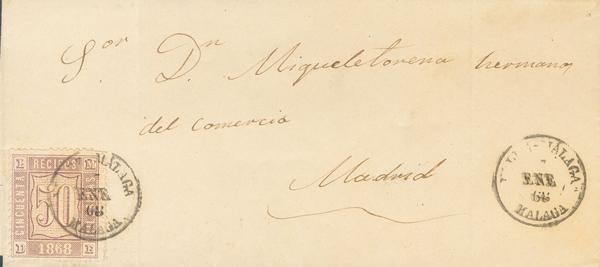 Sor Dn Migueletorena hermano,
del Comercio
Madrid
RECIBOS
CINCUENTA
50
1868
MÁLAGA
ENE
68
MALAGA
MÁLAGA
ENE
68
MALAGA